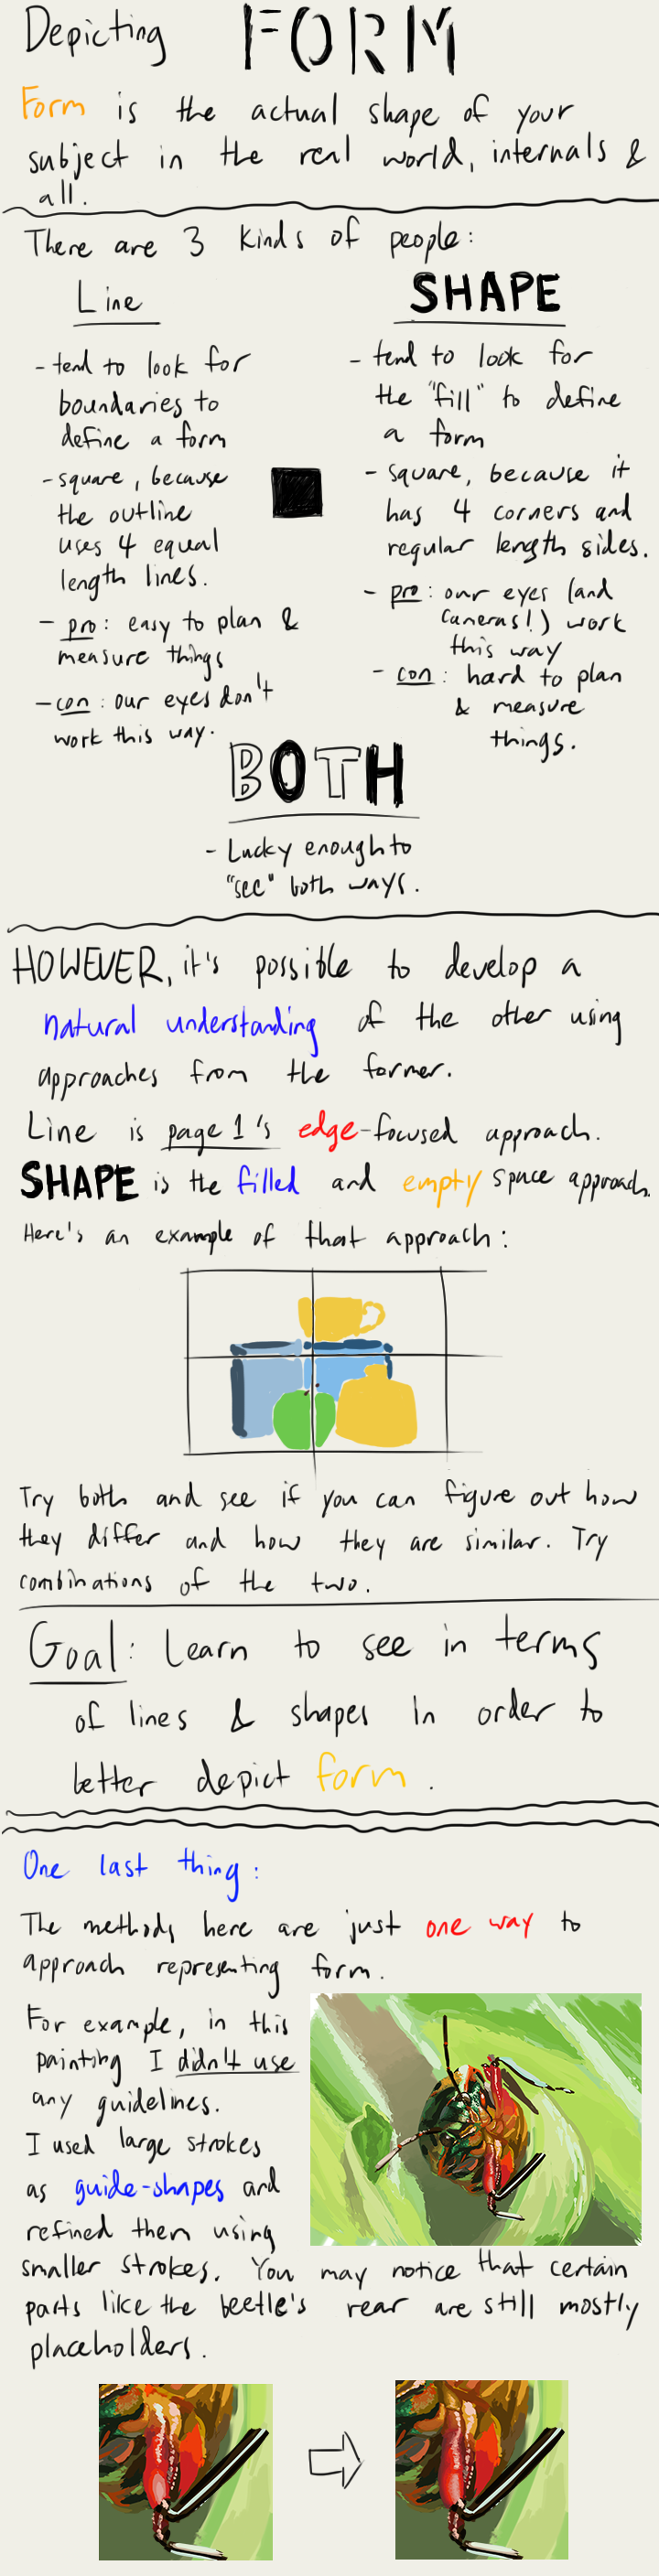 Depicting FORM
Form is the actual shape of your
subject in the real world, internals &
all.
There are 3 kinds of people:
Line
- tend to look for
boundaries to
define a form
- square, because
the outline
uses 4 equal
length lines.
- pro: easy to plan &
measure things
- con: our eyes don't
work this way.
SHAPE
- tend to look for
the "fill" to define
a form
- square, because it
has 4 corners and
regular length sides.
- pro: our eyes (and
cameras!) work
this way
- con: hard to plan
& measure
things.
BOTH
- Lucky enough to
"see" both ways.
HOWEVER, it's possible to develop a
natural understanding of the other using
approaches from the former.
Line is page 1's edge-focused approach.
SHAPE is the filled and empty space approach.
Here's an example of that approach:
Try both and see if you can figure out how
they differ and how they are similar. Try
combinations of the two.
Goal: Learn to see in terms
of lines & shapes in order to
better depict form.
One last thing:
The methods here are just one way to
approach representing form.
For example, in this
painting I didn't use
any guidelines.
I used large strokes
as guide-shapes and
refined them using
smaller strokes. You may notice that certain
parts like the beetle's rear are still mostly
placeholders.